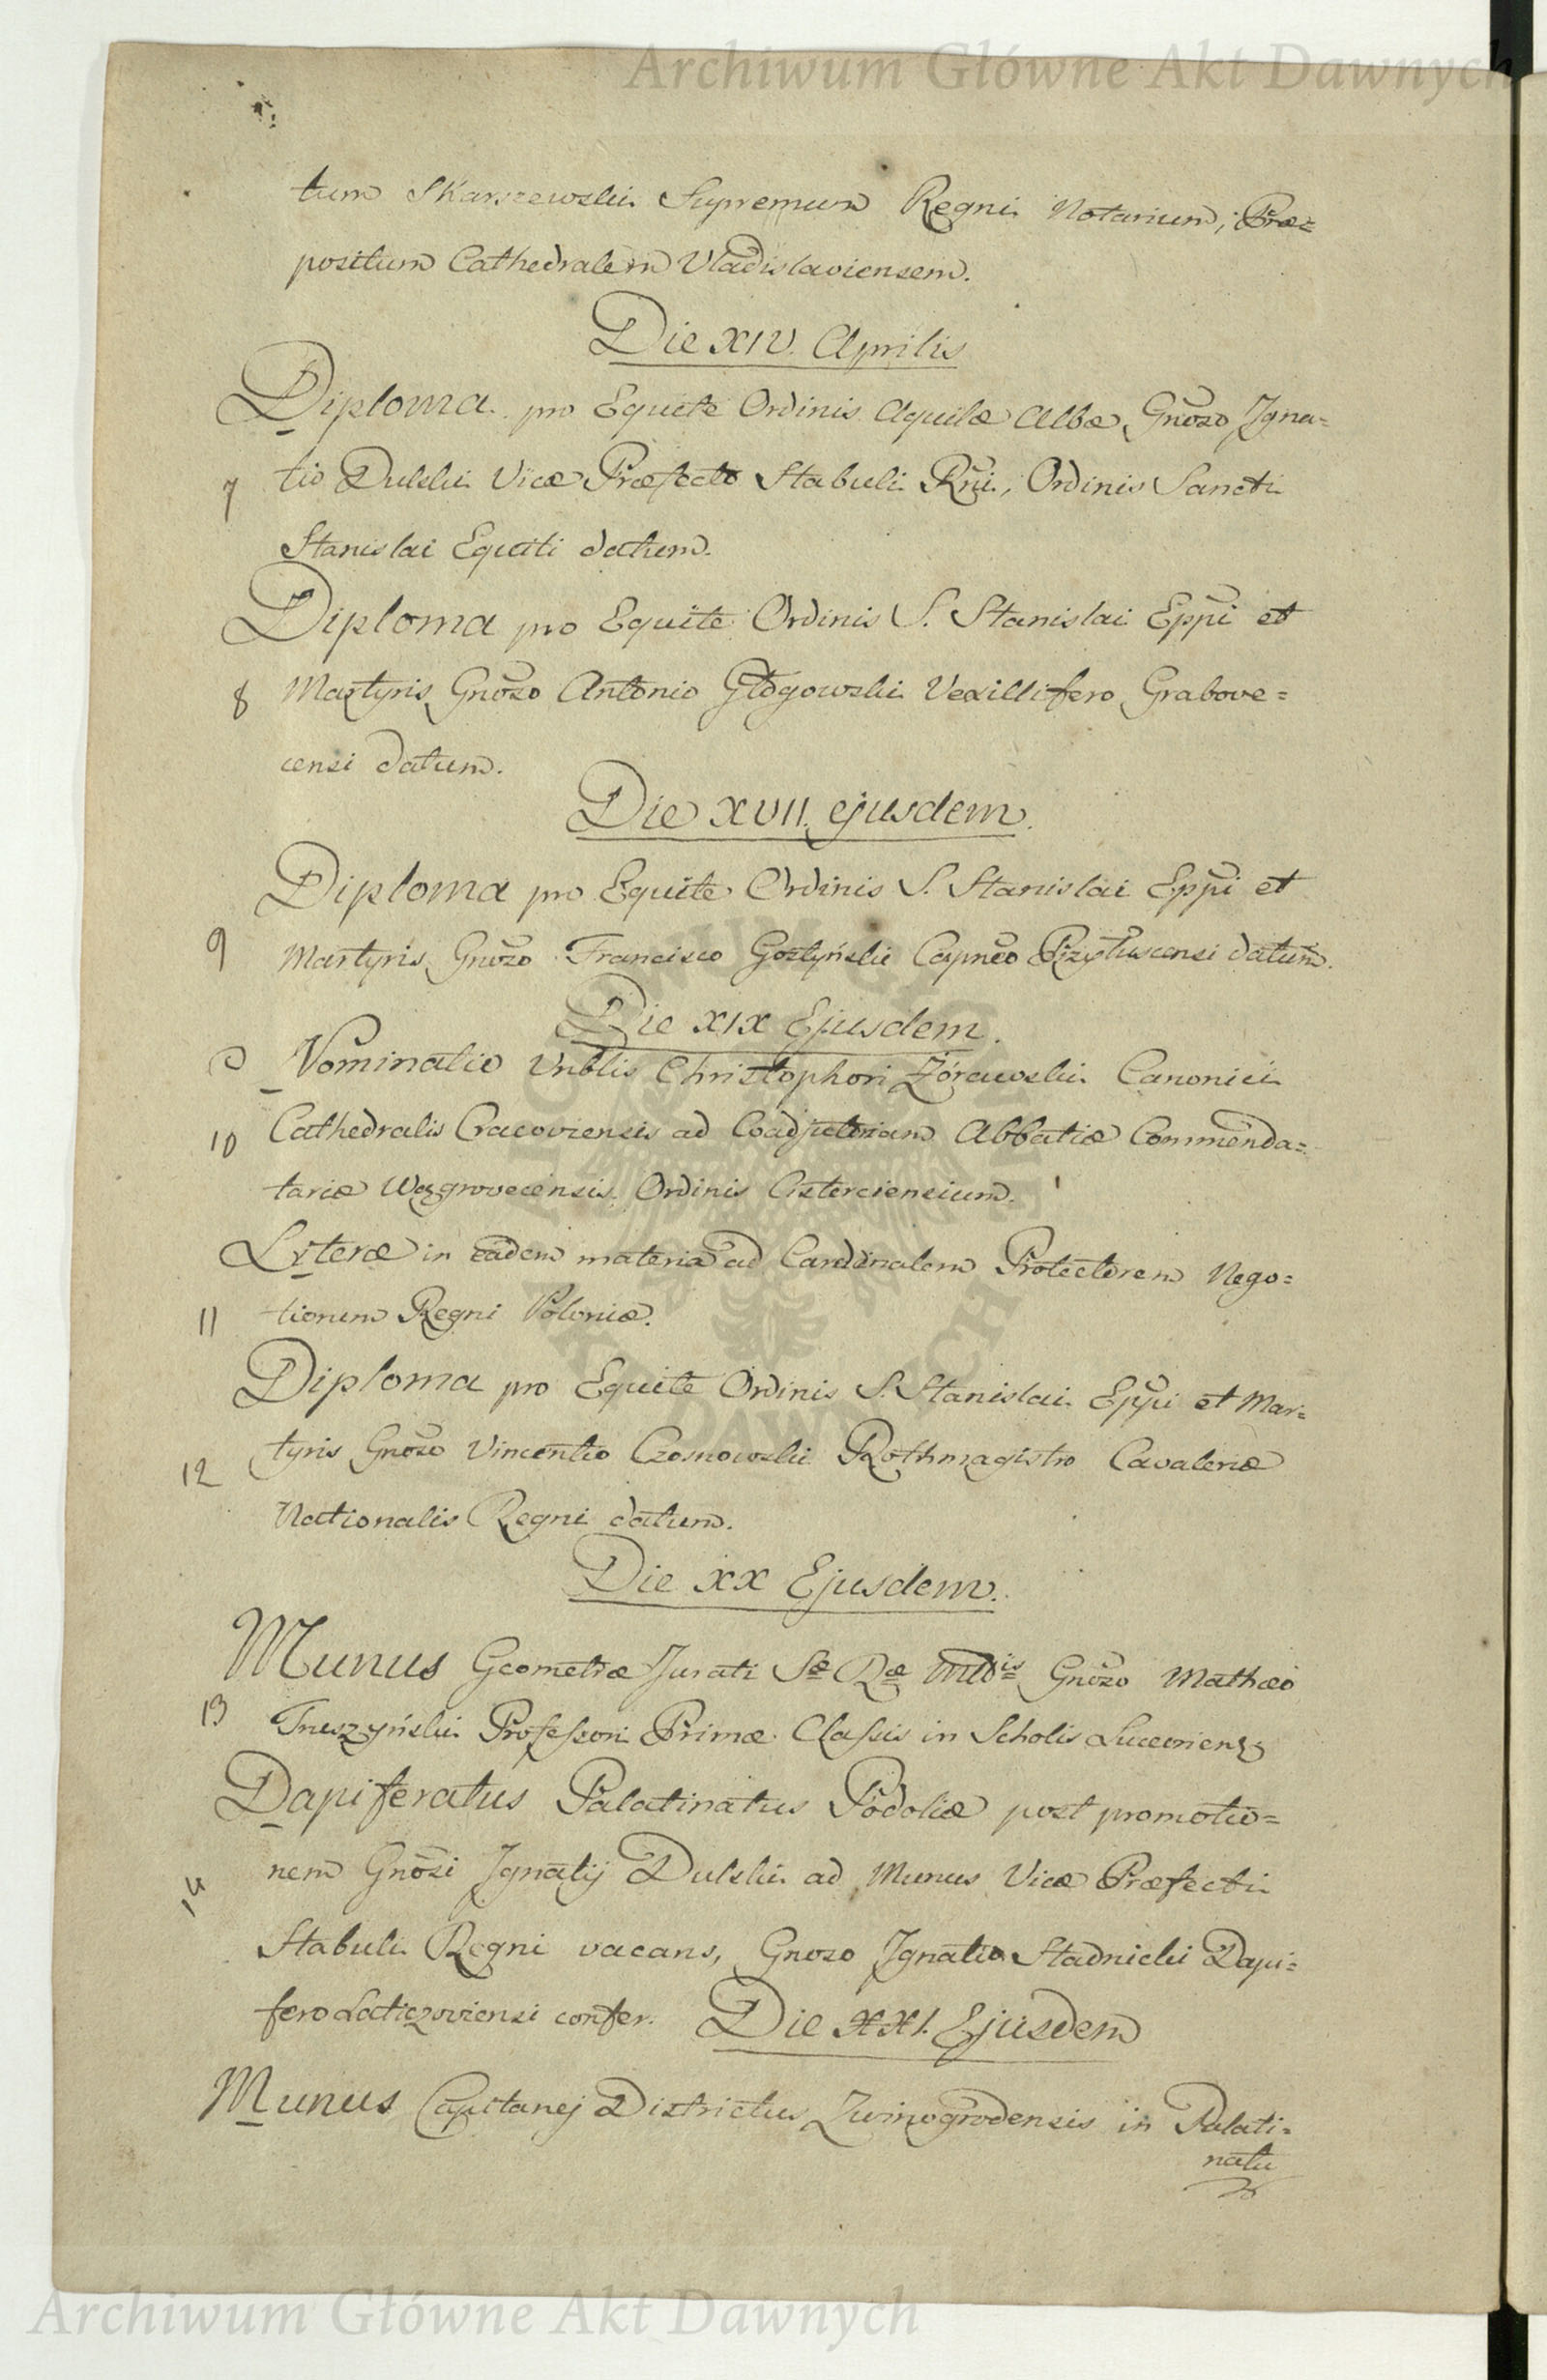 Archiwum Główne Akt Dawnych
tum Skarszewski Supremum Regni Notarium, Præ=
positum Cathedralem Vladislaviensem.
Die XIV. Aprilis
Diploma pro Equite Ordinis Aquilæ Albæ Gnoso Igna=
7 tio Dulski Vice Præfecto Stabuli Rni, Ordinis Sancti
Stanislai Equiti datum.
Diploma pro Equite Ordinis S. Stanislai Eppi et
8 Martyris Gnoso Antonio Głogowski Vexillifero Grabove=
censi datum.
Die XVII. ejusdem.
Diploma pro Equite Ordinis S. Stanislai Eppi et
9 Martyris Gnoso Francisco Gostyński Capneo datum.
Die XIX Ejusdem.
Nominatio Vnblis Christophori Żórawski Canonici
10 Cathedralis Cracoviensis ad Coadjutoriam Abbatiæ Commenda=
tariæ Wągrovecensis Ordinis Cisterciensium.
Lyteræ in eâdem materia ad Cardinalem Protectorem Nego=
11 tiorum Regni Poloniæ.
Diploma pro Equite Ordinis S. Stanislai Eppi et Mar=
12 tyris Gnoso Vincentio Czosnowski Rothmagistro Cavaleriæ
Nationalis Regni datum.
Die XX Ejusdem.
Munus Geometræ Jurati Sæ Ræ Gnoso Mathæo
13 Truszyński Professori Primæ Classis in Scholis
Dapiferatus Palatinatus Podoliæ post promotio=
14 nem Gnosi Ignatij Dulski ad Munus Vice Præfecti
Stabuli Regni vacans, Gnoso Ignatio Stadnicki Dapi=
fero Laticzoviensi confer. Die XXI. Ejusdem
Munus Capitanej Districtus Zwinogrodensis in Palati=
natu
Archiwum Główne Akt Dawnych